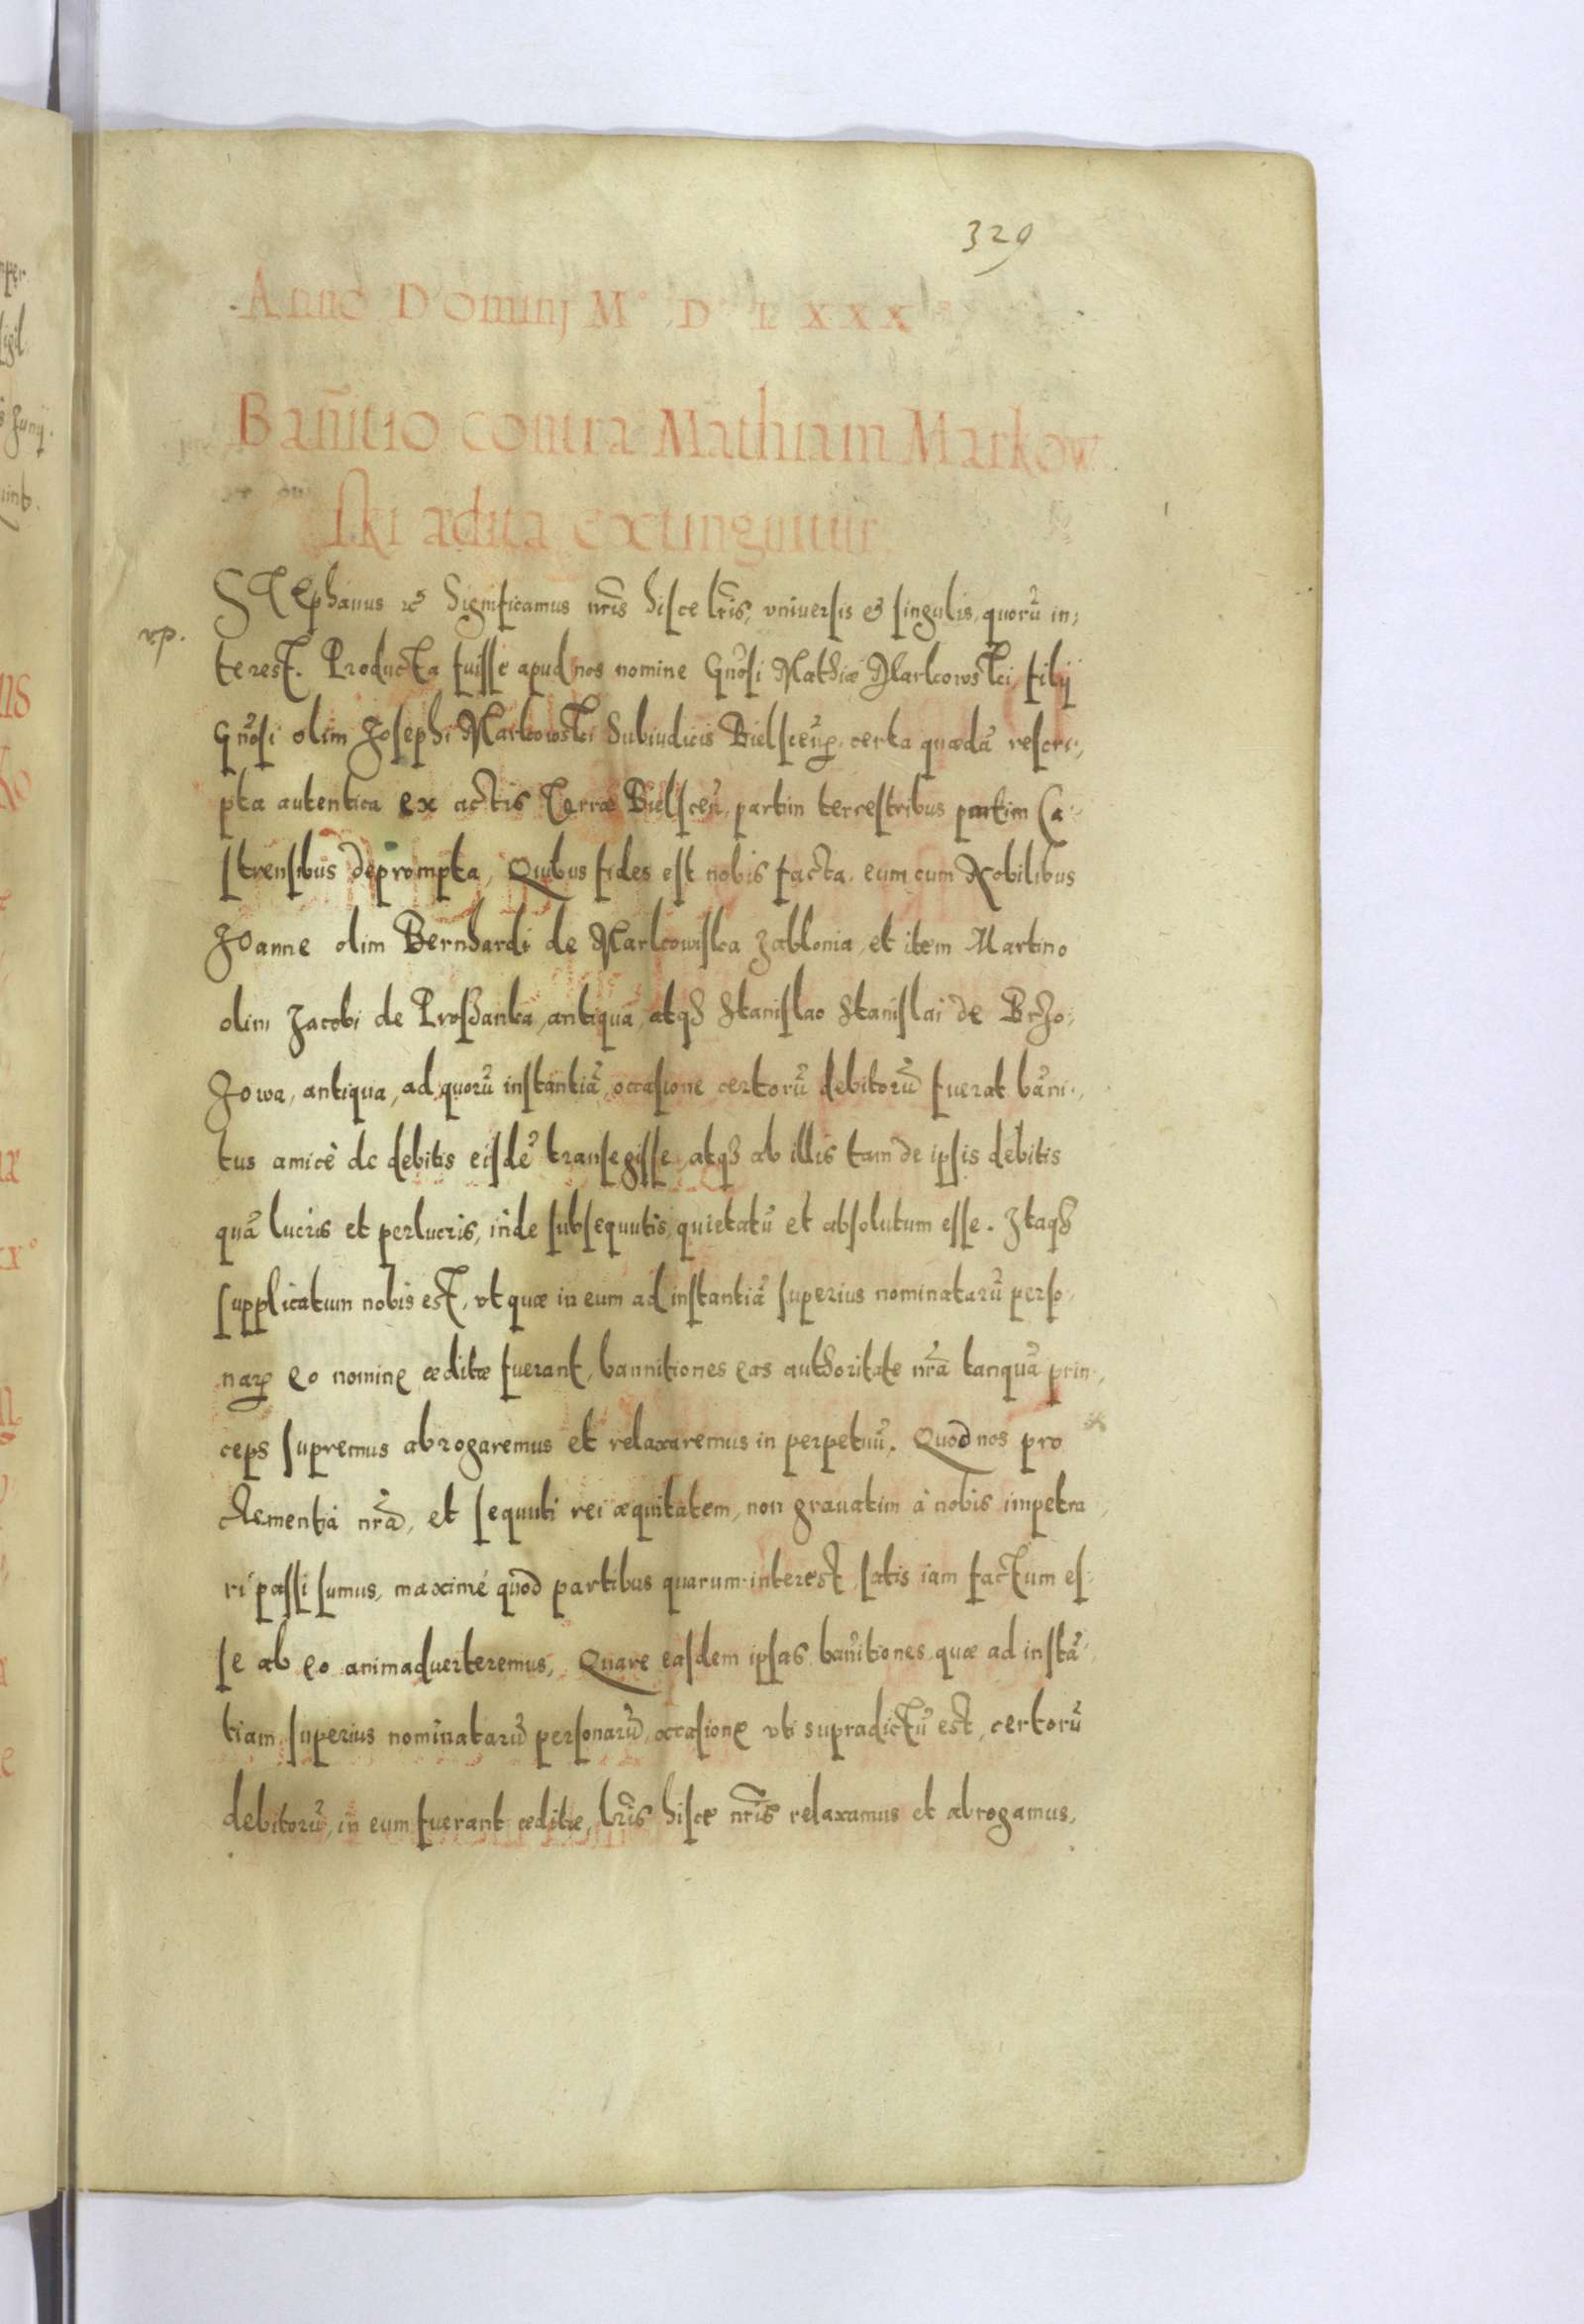 329
Anno Dominj M° D° LXXX°
Bañitio contra Mathiam Markow
ski ædita extinguitur
Stephanus ꝛc̃ Significamus nr̃is hisce lr̃is, vniuersis & singulis, quorũ in;
rp.
terest. Producta fuisse apud nos nomine Gñosi Mathiæ Markowski, filij
Gñosi olim Josephi Markowski Subiudicis Bielsceñ, certa quædã rescri;
pta autentica ex actis Terræ Bielsceñ, partim terrestribus partim Ca
strensibus deprompta, Quibus fides est nobis facta. eum cum Nobilibus
Joanne olim Bernhardi de Markowiska Jablonia, et item Martino
olim Jacobi de Proßanka, antiqua, atqꝫ Stanislao Stanislai de Brzo;
zowa, antiqua, ad quorũ instantiã, occasione certorũ debitorũ fuerat bãni,
tus amicè de debitis eisdẽ transegisse, atqꝫ ab illis tam de ipsis debitis
quã lucris et perlucris, inde subsequutis, quietatũ et absolutum esse. Itaqꝫ
supplicatum nobis est, vt quæ in eum ad instantiã superius nominatarũ perso
narꝝ eo nomine æditæ fuerant, bannitiones eas authoritate nr̃a tanquã prin,
ceps supremus abrogaremus et relaxaremus in perpetuũ. Quod nos pro
clementia nr̃a, et sequuti rei æquitatem, non grauatim à nobis impetra
ri passi sumus, maximé quod partibus quarum interest, satis iam factum es
se ab eo animaduerteremus, Quare easdem ipsas bañitiones quæ ad instã
tiam superius nominatarũ personarũ, occasione vti supradictũ est, certorũ
debitorũ, in eum fuerant æditæ, lr̃is hisce nr̃is relaxamus et abrogamus,